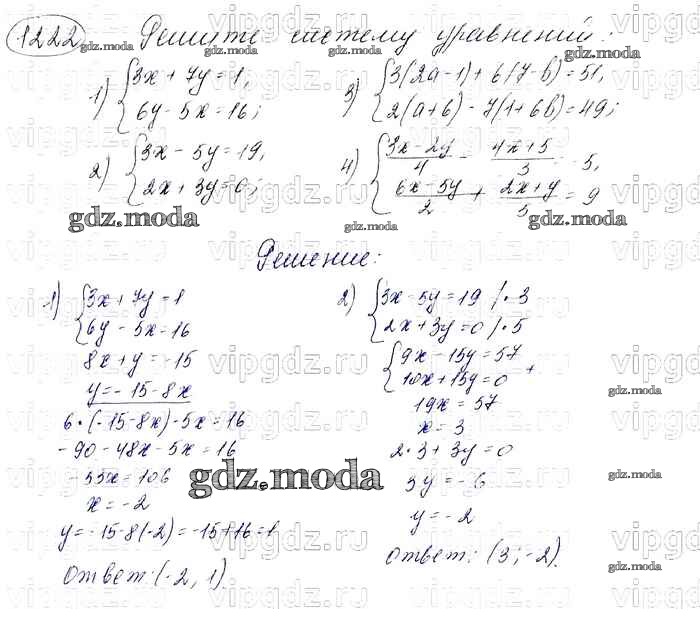 1222 Решите систему уравнений:
1) { 3x + 7y = 1,
6y - 5x = 16;
2) { 3x - 5y = 19,
2x + 3y = 0;
3) { 3(2a-1) + 6(7-b) = 51,
2(a+6) - 7(1+6b) = 49;
4) { (3x-2y)/4 - (4x+5)/3 = 5,
(6x-5y)/2 + (2x+y)/5 = 9
Решение:
1) { 3x + 7y = 1
6y - 5x = 16
8x + y = -15
y = -15 - 8x
6·(-15-8x) - 5x = 16
-90 - 48x - 5x = 16
-53x = 106
x = -2
y = -15-8(-2) = -15+16 = 1
Ответ: (-2, 1).
2) { 3x - 5y = 19 /·3
2x + 3y = 0 /·5
{ 9x - 15y = 57
10x + 15y = 0 +
19x = 57
x = 3
2·3 + 3y = 0
3y = -6
y = -2
Ответ: (3; -2).
gdz.moda
vipgdz.ru